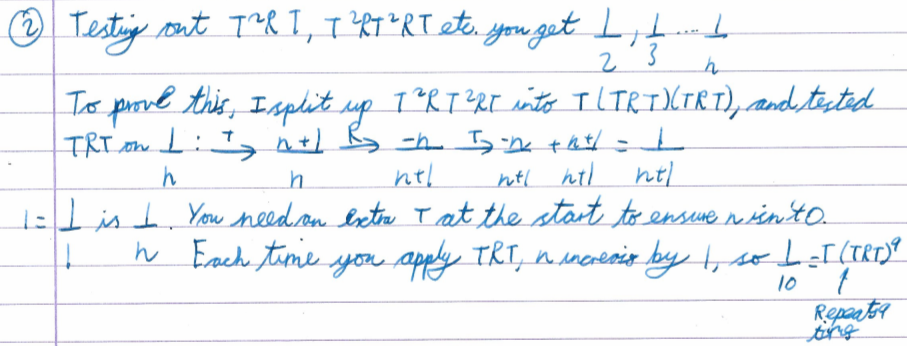 ② Testing out T²RT, T²RT²RT etc. you get 1/2, 1/3 .... 1/n
To prove this, I split up T²RT²RT into T(TRT)(TRT), and tested
TRT on 1/n : T→ n+1/n R→ -n/n+1 T→ -n/n+1 + n+1/n+1 = 1/n+1
1 = 1/1 is 1/n. You need an extra T at the start to ensure n isn't 0.
Each time you apply TRT, n increases by 1, so 1/10 = T(TRT)⁹
↑
Repeats 9
times